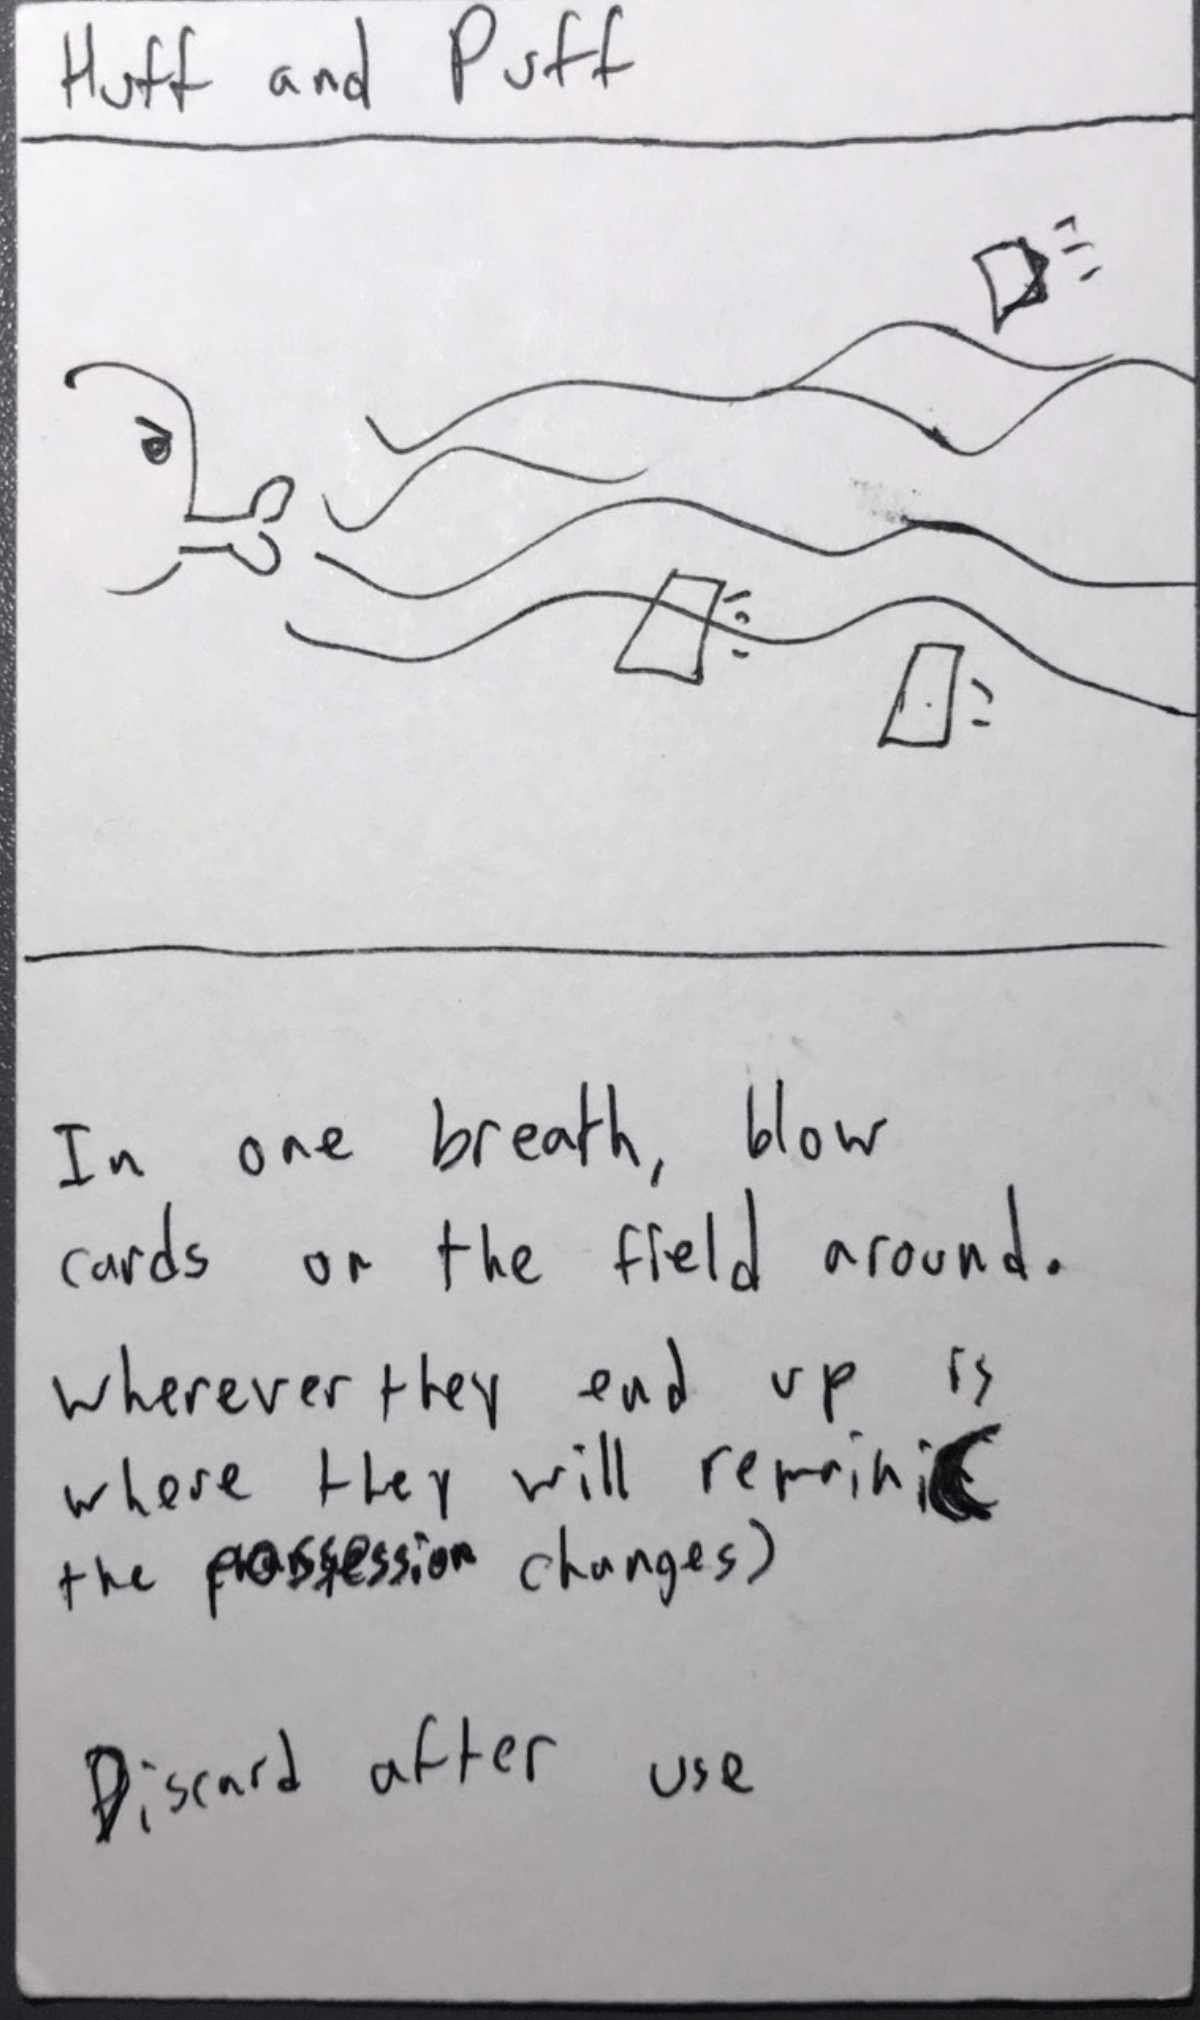 Huff and Puff
In one breath, blow
cards on the field around.
Wherever they end up is
where they will remain
the possession changes)
Discard after use